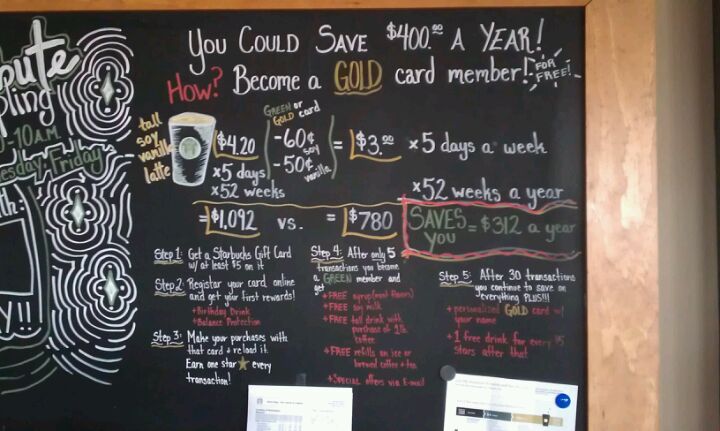 pute
pling
-10 A.M.
esday-Friday
th:
Y!!
YOU COULD SAVE $400.00 A YEAR!
How? Become a GOLD card member! FOR FREE!
tall
soy
vanilla
latte
$4.20
x5 days
x52 weeks
GREEN or
GOLD card
-60¢
soy
-50¢
vanilla
= $3.00 x5 days a week
x52 weeks a year
= $1,092 vs. = $780
SAVES = $312 a year
YOU
Step 1: Get a Starbucks Gift Card
w/ at least $5 on it
Step 2: Registar your card online
and get your first rewards!
+Birthday Drink
+Balance Protection
Step 3: Make your purchases with
that card + reload it.
Earn one star every
transaction!
Step 4: After only 5
transactions you become
a GREEN member and
get
+FREE syrup (most flavors)
+FREE soy milk
+FREE tall drink with
purchase of 1 lb.
coffee
+FREE refills on ice or
brewed coffee + tea
+SPECIAL offers via E-mail
Step 5: After 30 transactions
you continue to save on
everything PLUS!!!
+ personalized GOLD card w/
your name
+ 1 free drink for every 15
stars after that